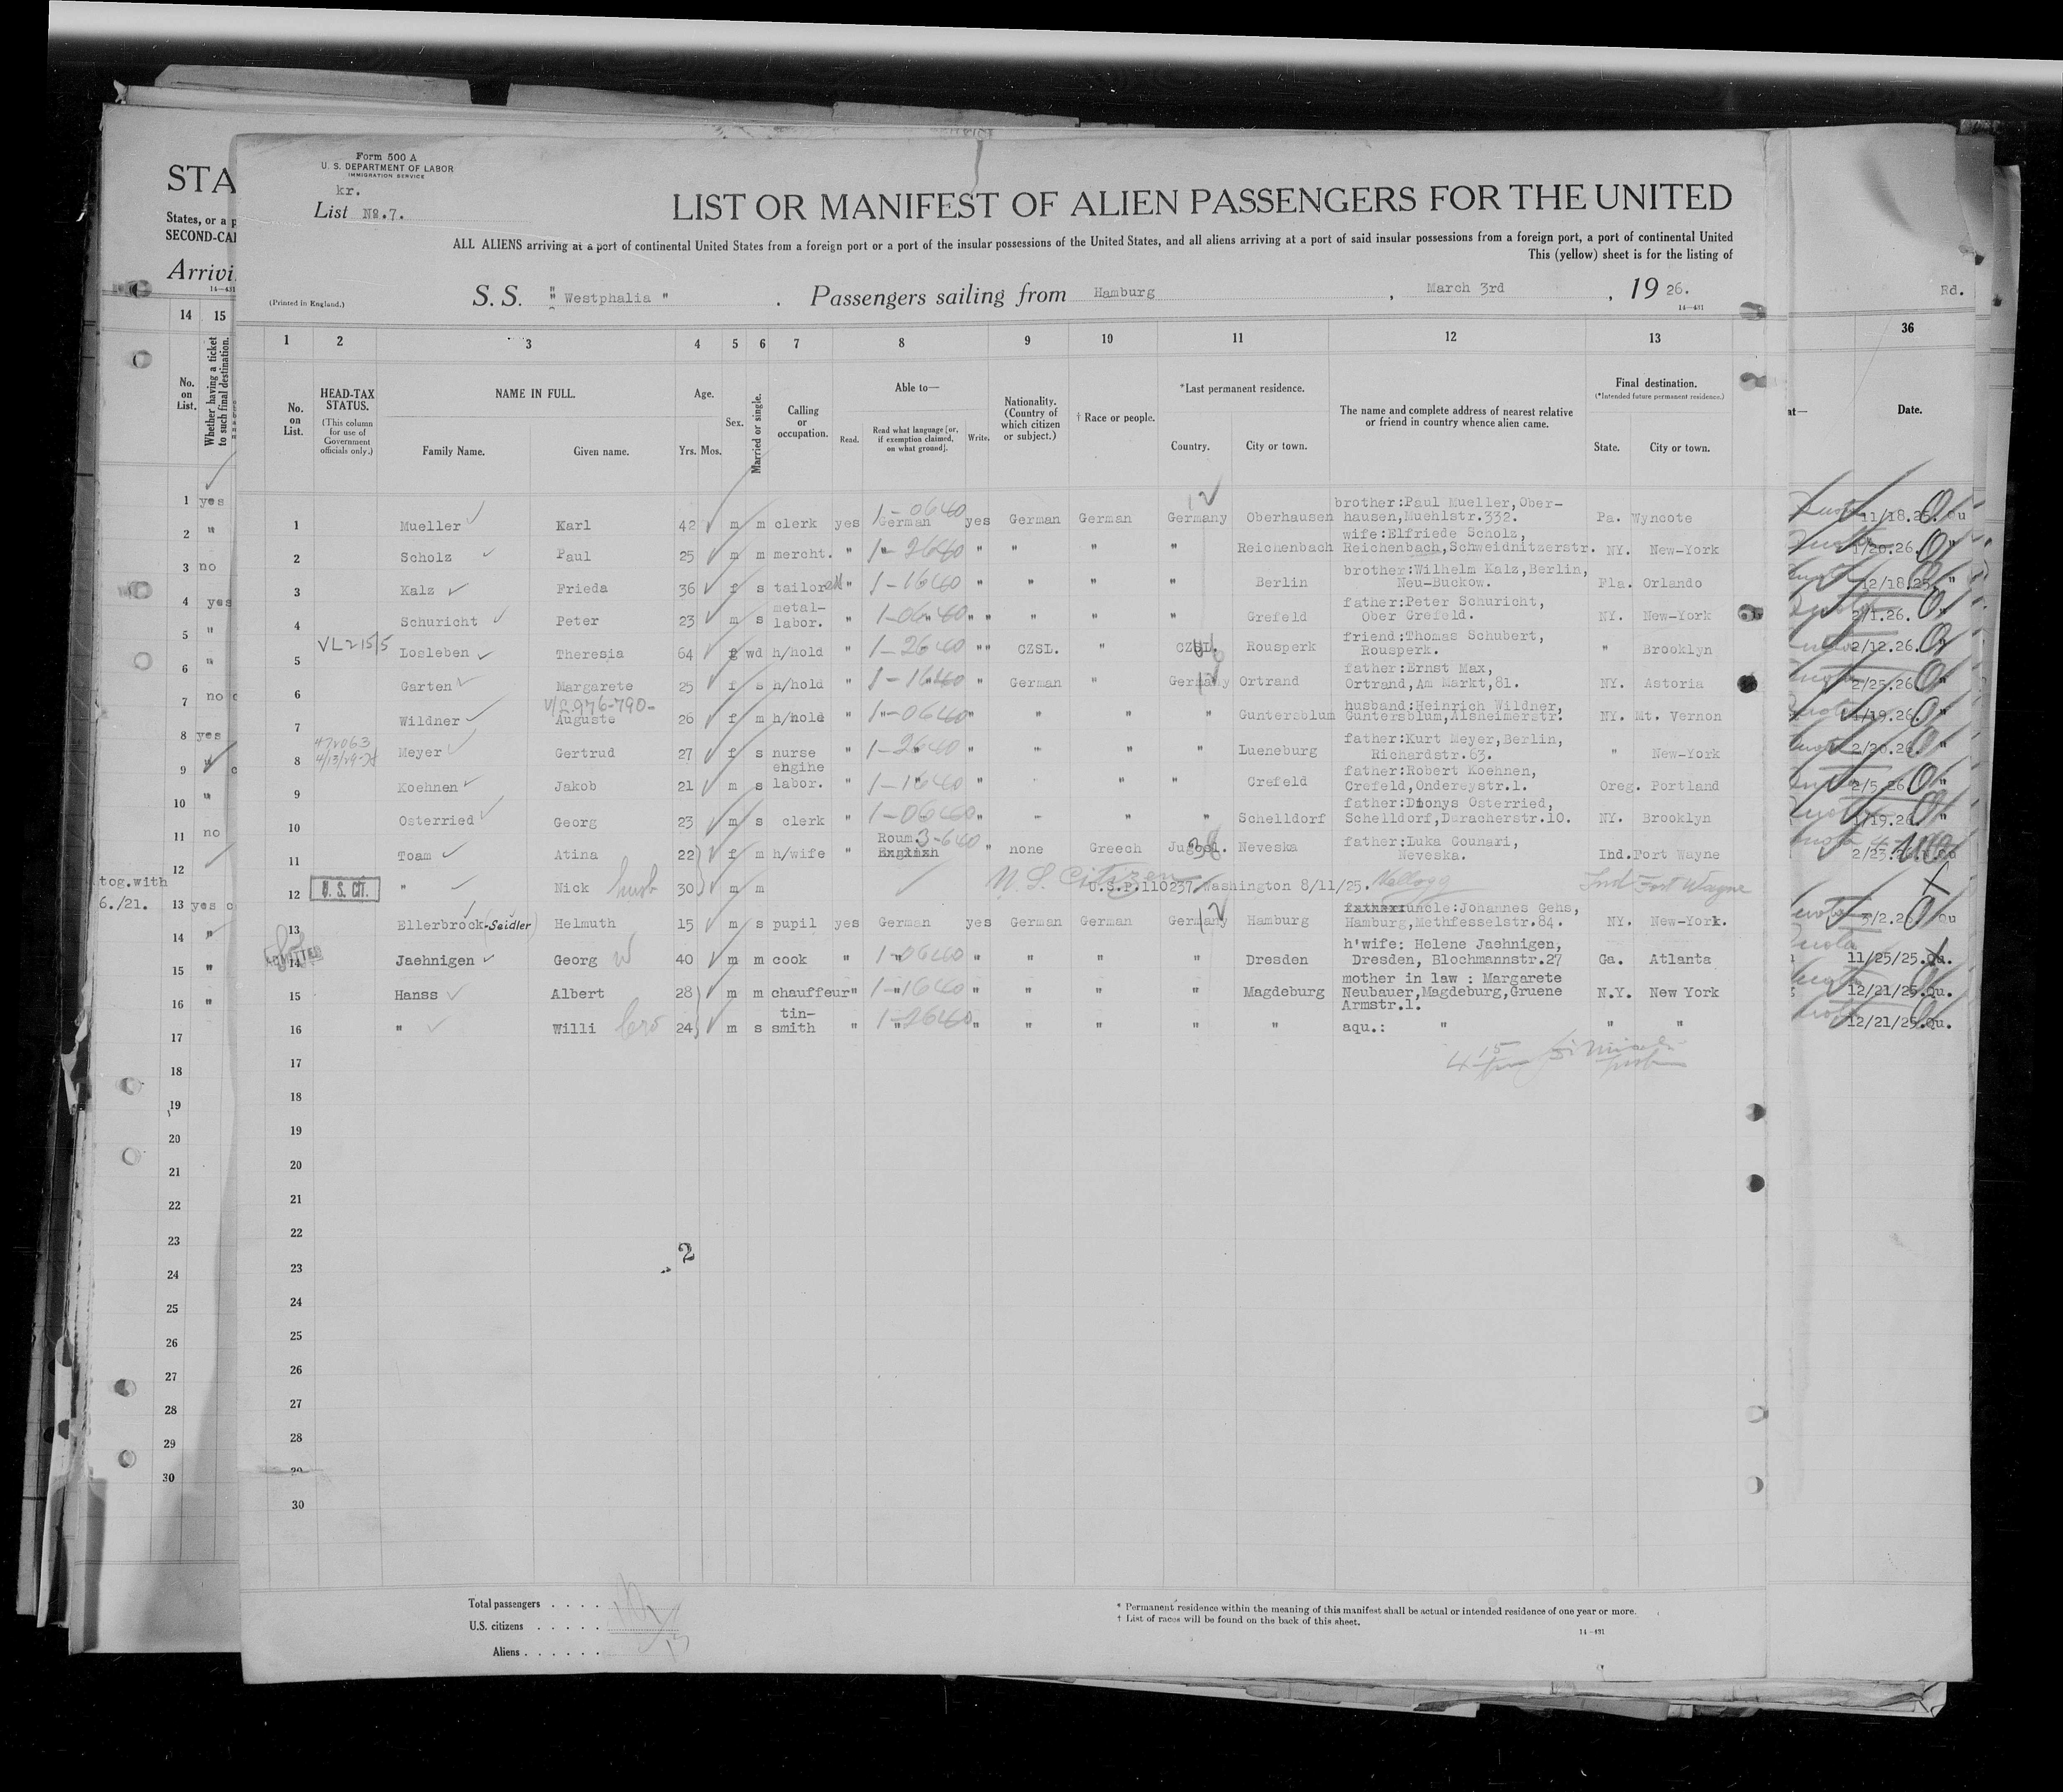 Form 500 A
U. S. DEPARTMENT OF LABOR
IMMIGRATION SERVICE
kr.
List No.7.
LIST OR MANIFEST OF ALIEN PASSENGERS FOR THE UNITED
ALL ALIENS arriving at a port of continental United States from a foreign port or a port of the insular possessions of the United States, and all aliens arriving at a port of said insular possessions from a foreign port, a port of continental United
This (yellow) sheet is for the listing of
(Printed in England.)
S. S. " Westphalia " . Passengers sailing from Hamburg , March 3rd , 19 26.
14—431
STA
States, or a p
SECOND-CA
Arrivi
14—431
Rd.
14 15
No. on List.
Whether having a ticket to such final destination.
36
Date.
1 2 3 4 5 6 7 8 9 10 11 12 13
No. on List.
HEAD-TAX STATUS.
(This column for use of Government officials only.)
NAME IN FULL.
Family Name. Given name.
Age.
Yrs. Mos.
Sex.
Married or single.
Calling or occupation.
Able to—
Read. Read what language [or, if exemption claimed, on what ground]. Write.
Nationality. (Country of which citizen or subject.)
† Race or people.
*Last permanent residence.
Country. City or town.
The name and complete address of nearest relative or friend in country whence alien came.
Final destination.
(*Intended future permanent residence.)
State. City or town.
1 Mueller Karl 42 m m clerk yes German 1-0640 yes German German Germany 12 Oberhausen brother:Paul Mueller,Ober-
hausen,Muehlstr.332. Pa. Wyncote 11/18.25. Qu
2 Scholz Paul 25 m m mercht. " " 1-2640 " " " " Reichenbach wife:Elfriede Scholz,
Reichenbach,Schweidnitzerstr. NY. New-York 1/20.26. "
3 Kalz Frieda 36 f s tailor " 1-1640 " " " " Berlin brother:Wilhelm Kalz,Berlin,
Neu-Buckow. Fla. Orlando 12/18.25. "
4 Schuricht Peter 23 m s metal-
labor. " 1-0640 " " " " " Grefeld father:Peter Schuricht,
Ober Grefeld. NY. New-York 2/1.26. "
VL 215/5
5 Losleben Theresia 64 f wd h/hold " 1-2640 " " CZSL. " CZSL. Rousperk friend:Thomas Schubert,
Rousperk. " Brooklyn 2/12.26. "
6 Garten Margarete 25 f s h/hold " 1-1640 " German " Germany Ortrand father:Ernst Max,
Ortrand,Am Markt,81. NY. Astoria 2/25.26 "
V/L 976-790-
7 Wildner Auguste 26 f m h/hold " 1-0640 " " " " Guntersblum husband:Heinrich Wildner,
Guntersblum,Alsheimerstr. NY. Mt. Vernon 1/19.26. "
4/13/29
8 Meyer Gertrud 27 f s nurse " 1-2640 " " " " Lueneburg father:Kurt Meyer,Berlin,
Richardstr.63. " New-York 2/20.26. "
9 Koehnen Jakob 21 m s engine
labor. " 1-1640 " " " " Crefeld father:Robert Koehnen,
Crefeld,Ondereystr.1. Oreg. Portland 2/5.26. "
10 Osterried Georg 23 m s clerk " 1-0640 " " " " Schelldorf father:Dionys Osterried,
Schelldorf,Duracherstr.10. NY. Brooklyn 1/19.26. "
11 Toam Atina 22 f m h/wife " Roum. 3-640 English " none Greech Jugosl. Neveska father:Luka Gounari,
Neveska. Ind. Fort Wayne 2/23.26.
12 U. S. CIT. " Nick husb 30 m m U.S. Citizen U.S.P.110237, Washington 8/11/25. Kellogg Ind Fort Wayne
13 Ellerbrock-(Seidler) Helmuth 15 m s pupil yes German yes German German Germany 12 Hamburg uncle:Johannes Gehs,
Hamburg,Methfesselstr.84. NY. New-York. 3/2.26. Qu
ADMITTED
14 Jaehnigen Georg 40 m m cook " 1-0640 " " " " Dresden h'wife: Helene Jaehnigen,
Dresden, Blochmannstr.27 Ga. Atlanta 11/25/25.Qu.
15 Hanss Albert 28 m m chauffeur " 1-1640 " " " " Magdeburg mother in law : Margarete
Neubauer,Magdeburg,Gruene
Armstr.1. N.Y. New York 12/21/25.Qu.
16 " Willi bro 24 m s tin-
smith " 1-2640 " " " " " aqu.: " " " 12/21/25.Qu.
17
18
19
20
21
22
2
23
24
25
26
27
28
29
30
1 yes
2 "
3 no
4 yes
5 "
6 "
7 no
8 yes
9 "
10 "
11 no
12
tog.with
6./21.
13 yes
14 "
15 "
16 "
17
18
19
20
21
22
23
24
25
26
27
28
29
30
Total passengers . . . .
U.S. citizens . . . . .
Aliens . . . . . .
* Permanent residence within the meaning of this manifest shall be actual or intended residence of one year or more.
† List of races will be found on the back of this sheet.
14—431